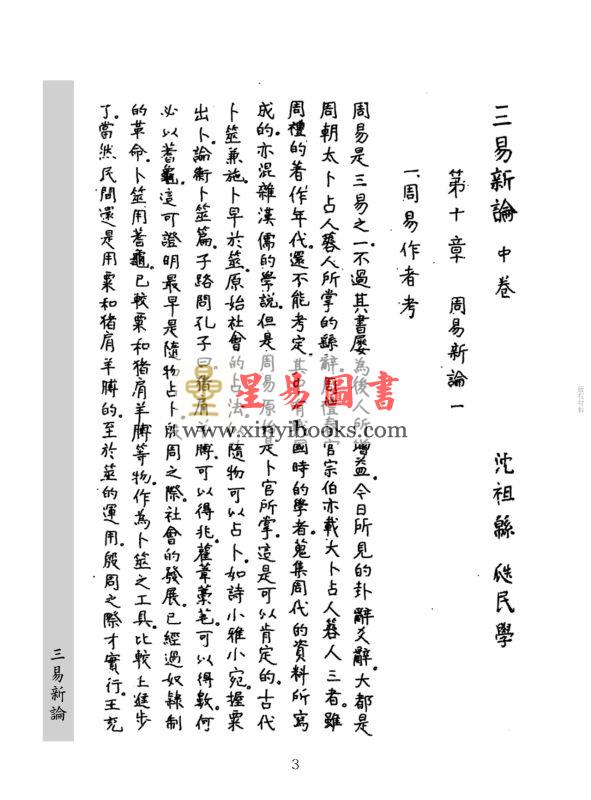 三易新論 中卷
沈祖緜 瓞民學
第十章 周易新論一
一周易作者考
周易是三易之一不過其書屢為後人所增益今日所見的卦辭爻辭大都是
周朝太卜占人簭人所掌的繇辭周禮春官宗伯亦載大卜占人簭人三者雖
周禮的著作年代還不能考定其中有戰國時的學者蒐集周代的資料所寫
成的亦混雜漢儒的學說但是周易原始是卜官所掌這是可以肯定的古代
卜筮兼施卜早於筮原始社會的占法以隨物可以占卜如詩小雅小宛握粟
出卜論衡卜筮篇子路問孔子曰猪肩羊膊可以得兆雚葦藁芼可以得數何
必以蓍龜這可證明最早是隨物占卜殷周之際社會的發展已經過奴隸制
的革命卜筮用蓍龜已較粟和猪肩羊膊等物作為卜筮之工具比較上進步
了當然民間還是用粟和猪肩羊膊的至於筮的運用殷周之際才實行王充
三易新論
3
版权材料
星易圖書
www.xinyibooks.com